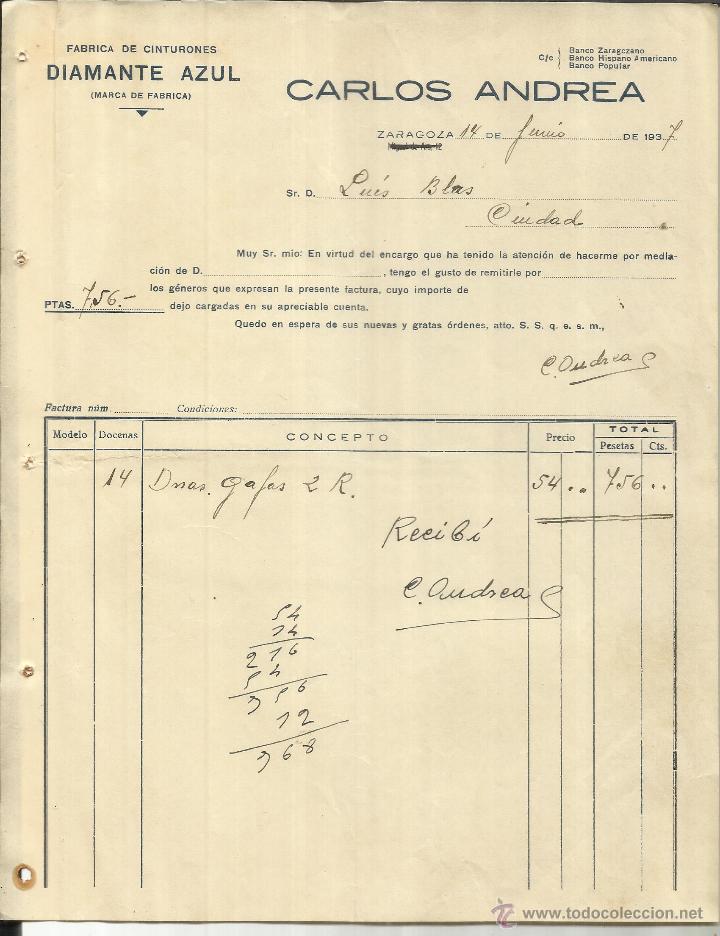 FABRICA DE CINTURONES
DIAMANTE AZUL
(MARCA DE FABRICA)
C/c
Banco Zaragozano
Banco Hispano Americano
Banco Popular
CARLOS ANDREA
ZARAGOZA 14 DE Junio DE 1937
Sr. D. Luis Blas
Ciudad
Muy Sr. mio: En virtud del encargo que ha tenido la atención de hacerme por media-
ción de D. , tengo el gusto de remitirle por
los géneros que expresan la presente factura, cuyo importe de
PTAS. 756.- dejo cargadas en su apreciable cuenta.
Quedo en espera de sus nuevas y gratas órdenes, atto. S. S. q. e. s. m.,
C. Andrea
Factura núm. Condiciones:
Modelo Docenas CONCEPTO Precio TOTAL
Pesetas Cts.
14 Dnas. gafas 2 R. 54 .. 756 ..
Recibí
C. Andrea
54
14
216
54
756
12
768
www.todocoleccion.net